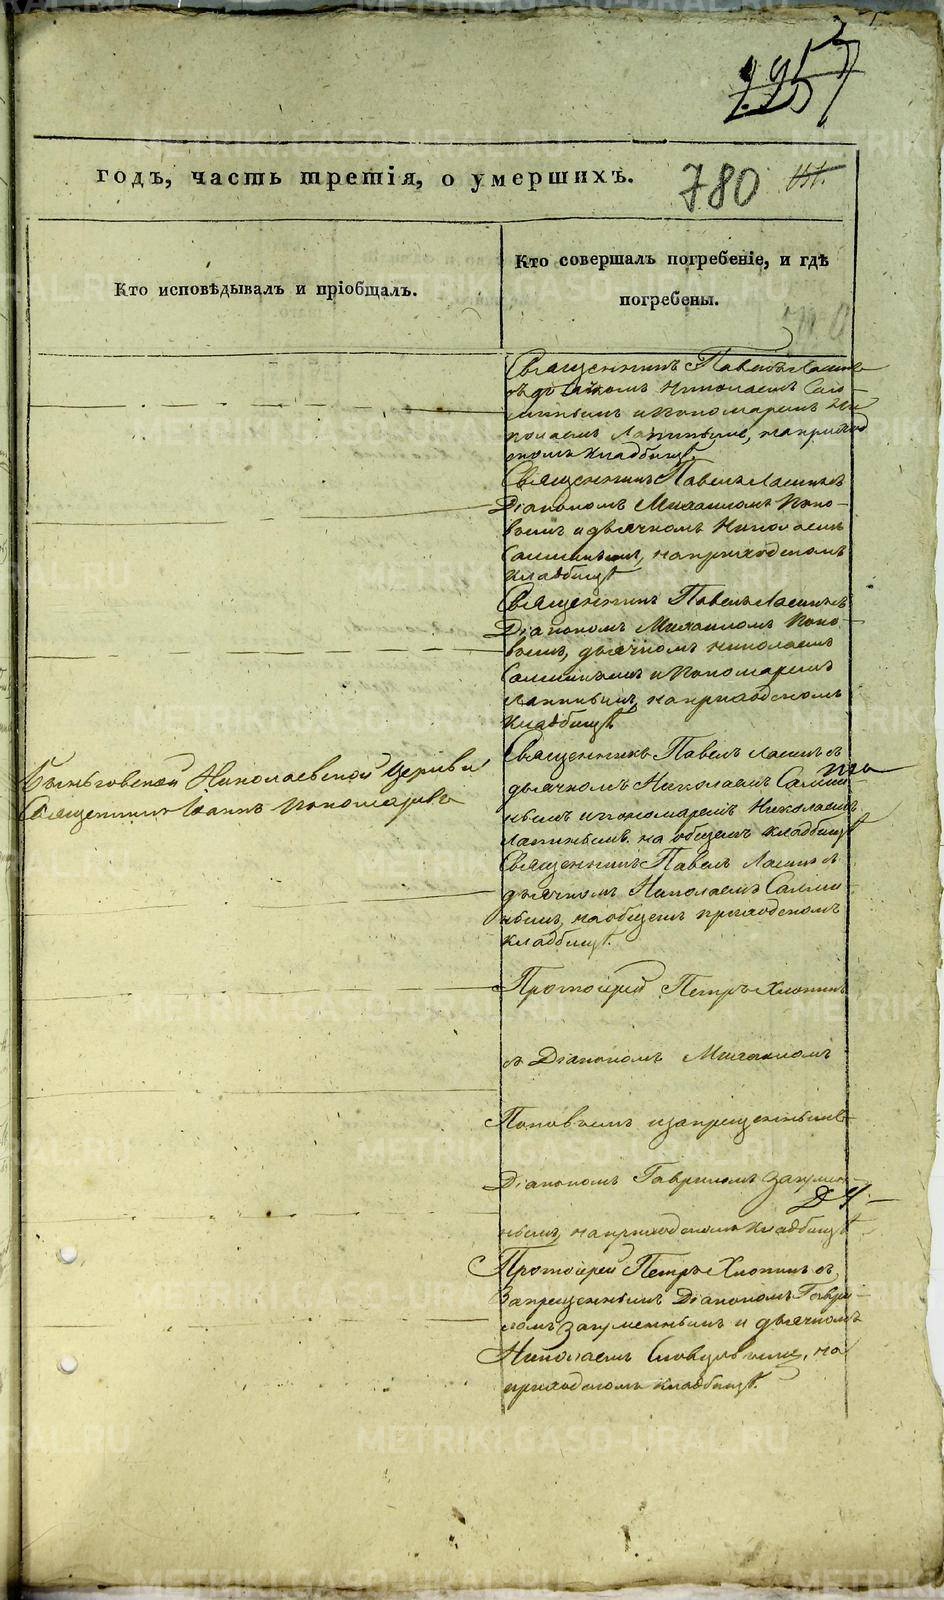 2257
годъ, часть третія, о умершихъ.
780
Кто исповѣдывалъ и пріобщалъ.
Кто совершалъ погребеніе, и гдѣ
погребены.
Священникъ Павелъ
дьячкомъ Николаемъ
и пономаремъ Ни
колаемъ Лапинымъ, на приход
скомъ кладбищѣ.
Священникъ Павелъ съ
Діакономъ Михаиломъ Попо-
вымъ и дьячкомъ Николаемъ
на приходскомъ
кладбищѣ
Священникъ Павелъ съ
Діакономъ Михаиломъ Попо-
вымъ, дьячкомъ Николаемъ
и пономаремъ
Лапинымъ, на приходскомъ
кладбищѣ
Быньговской Николаевской церкви
Священникъ Іоаннъ Пономаревъ
Священникъ Павелъ съ
дьячкомъ Николаемъ
нымъ и пономаремъ Николаемъ
Лапинымъ на общемъ кладбищѣ
Священникъ Павелъ съ
дьячкомъ Николаемъ
нымъ, на общемъ приходскомъ
кладбищѣ.
Протоіерей Петръ Хлопинъ
съ Діакономъ Михаиломъ
Поповымъ и запрещеннымъ
Діакономъ Гавриломъ Загумен-
нымъ, на приходскомъ кладбищѣ
Протоіерей Петръ Хлопинъ съ
Запрещеннымъ Діакономъ Гаври-
ломъ Загуменнымъ и дьячкомъ
Николаемъ Словцовымъ, на
приходскомъ кладбищѣ.
METRIKI.GASO-URAL.RU